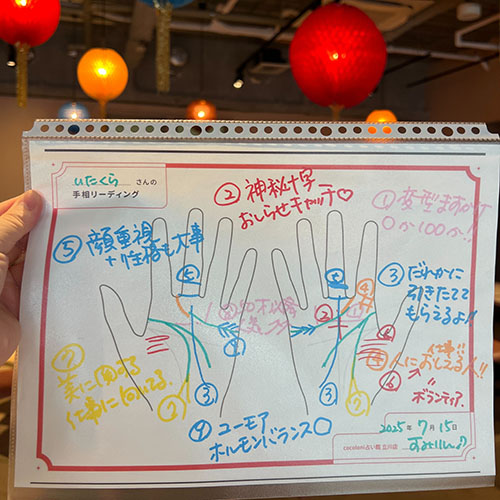 いたくら さんの
手相リーディング
② 神秘十字
おしらせキャッチ♡
① 変型ますかけ
0か100か!!
⑤ 顔重視
+性格も大事
③ だれかに
引きたてて
もらえるよ!!
仕事
人におしえる人!!
⑥
ボランティア
⑦
美に関する
仕事に向いてる
④ ユーモア
ホルモンバランス○
2025年 7月 15日
cocoloni占い館 立川店